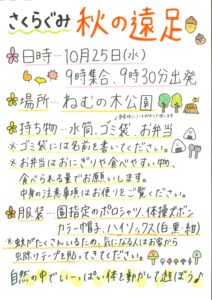 さくらぐみ 秋の遠足
日時…10月25日(水)
9時集合、9時30分出発
場所…ねむの木公園
持ち物…水筒、ゴミ袋、お弁当
※ゴミ袋には名前を書いてください。
※お弁当はおにぎりや食べやすい物、
食べられる量でお願いします。
中身の注意事項はお便りをご覧ください。
服装…園指定のポロシャツ、体操ズボン
カラー帽子、ハイソックス(白・黒・紺)
※蚊がたくさんいるため、気になる人はお家から
虫除けテープを貼ってきてください。
自然の中でい〜っぱい体を動かして遊ぼう♪